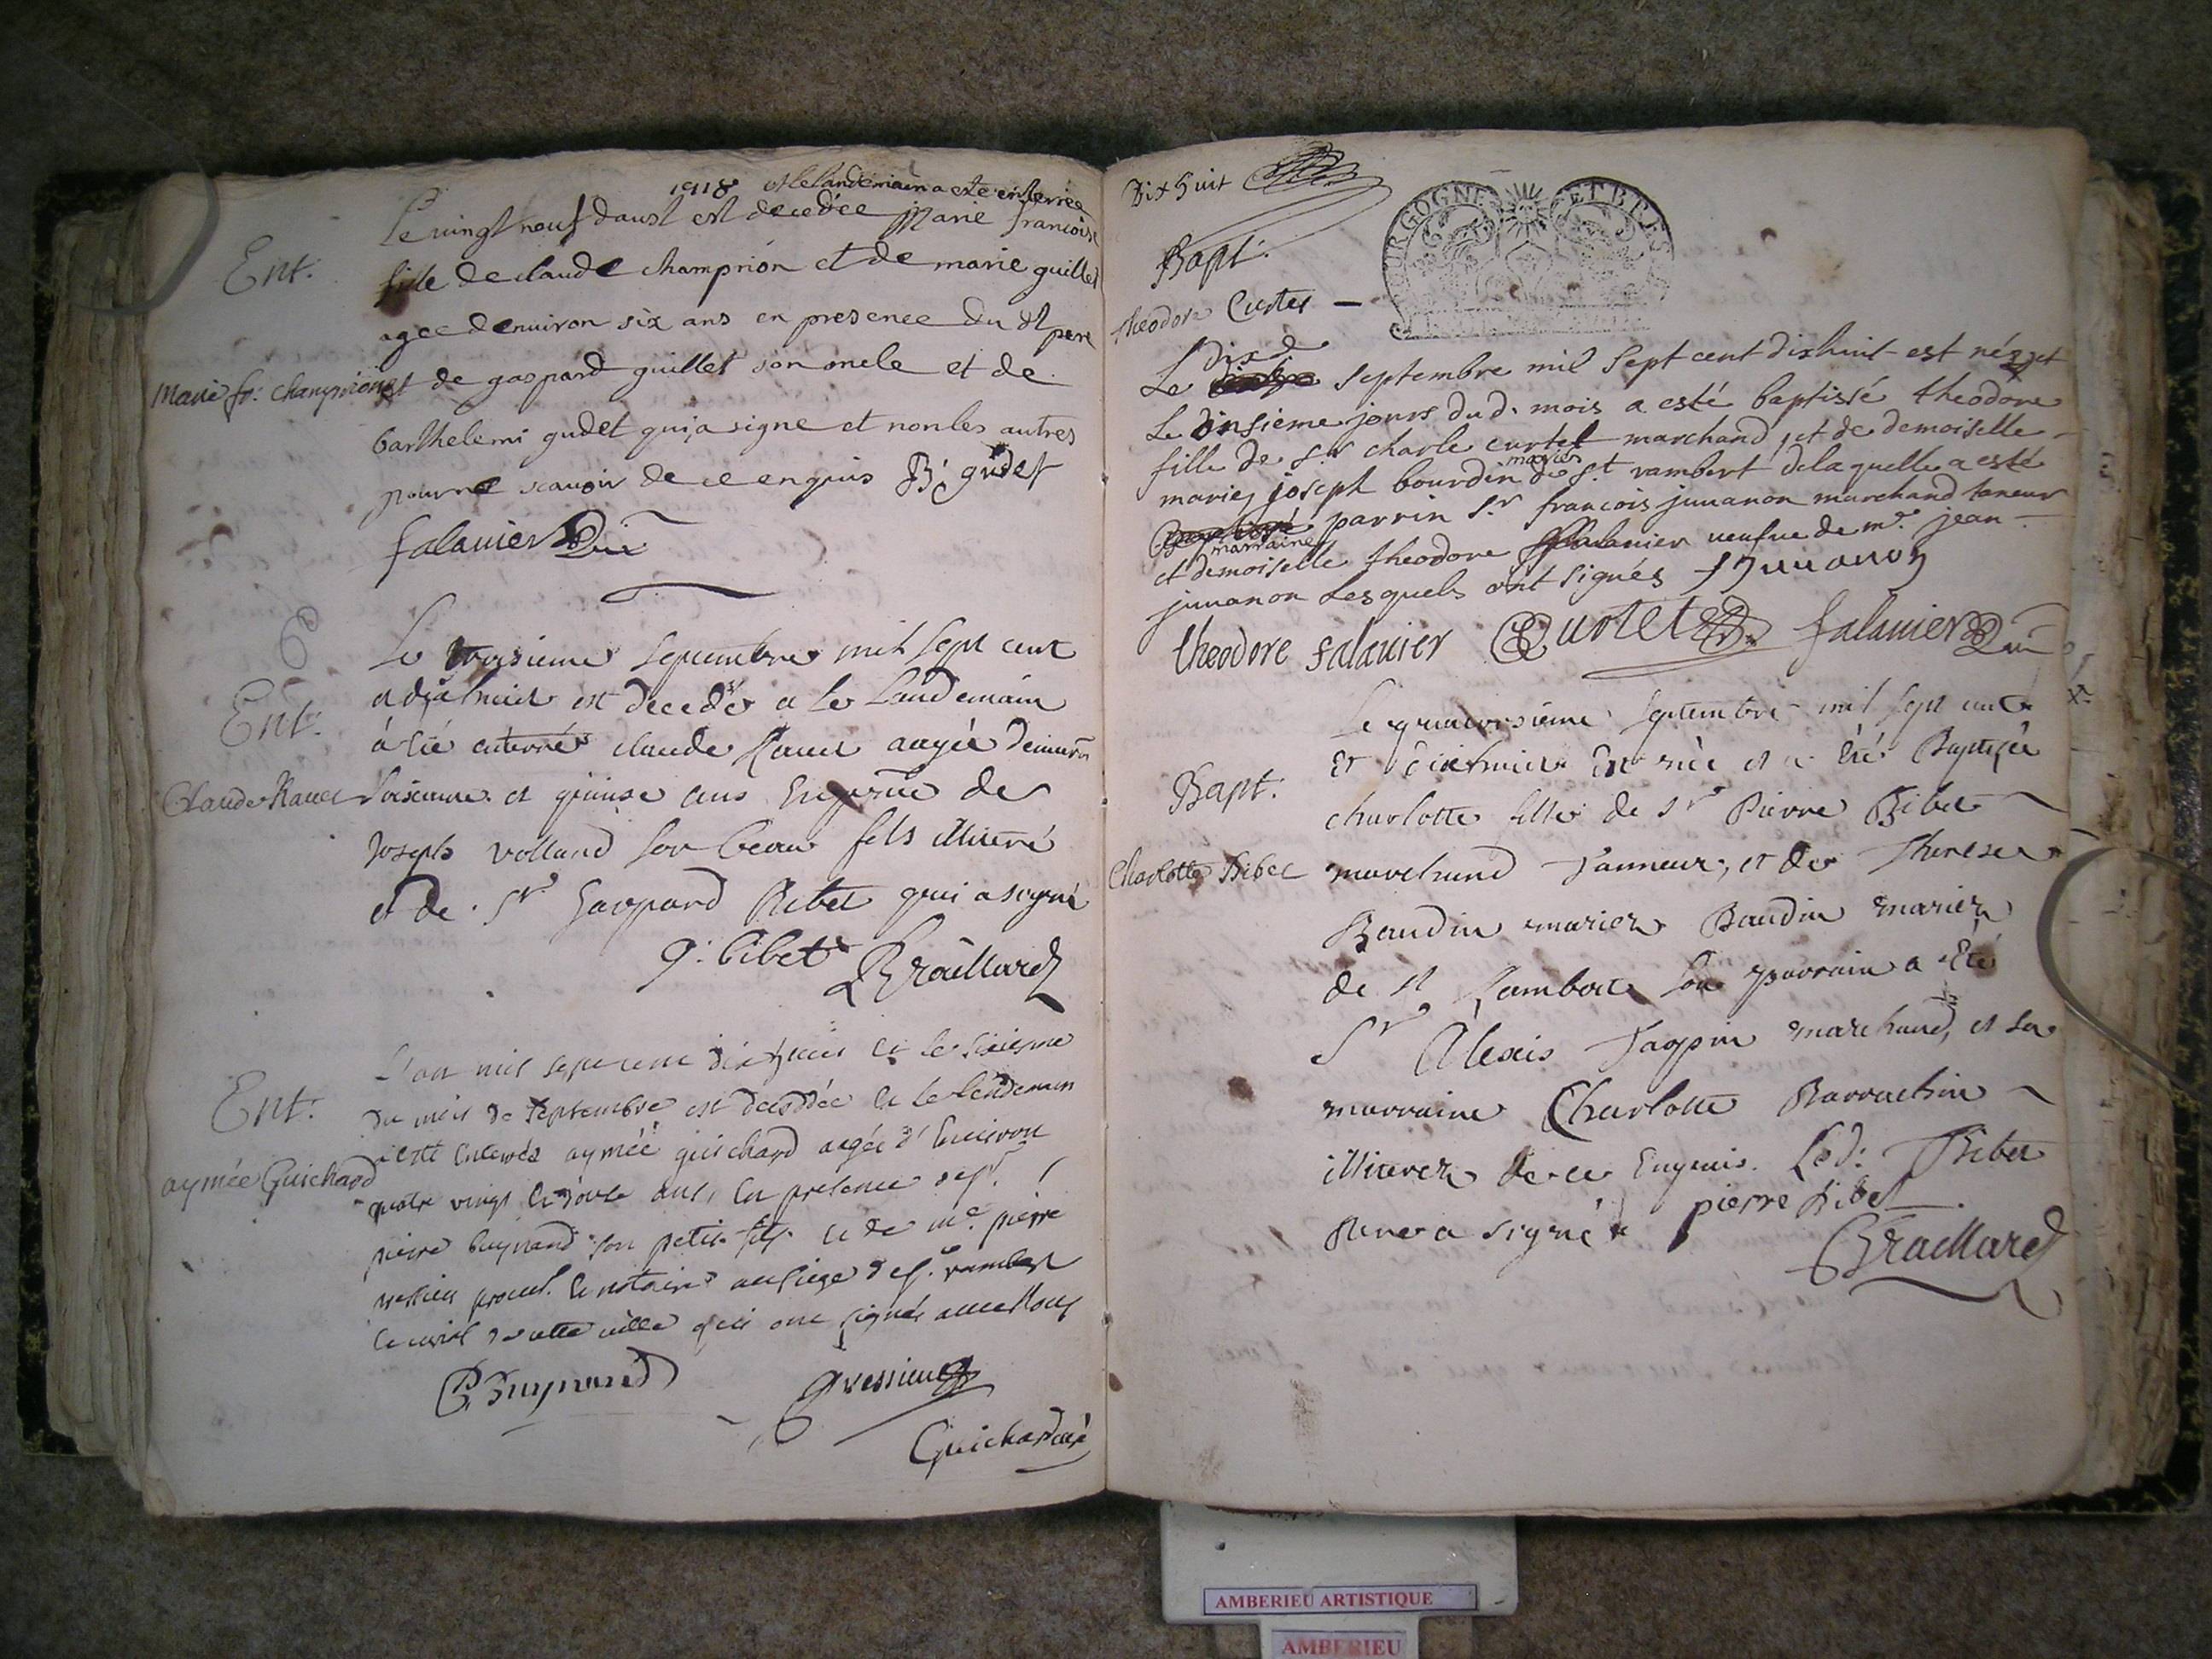 1718 et le landemain a ete enterree
Le vingt neuf daust est decedée Marie francoise
Ent.
fille de claude champrion et de marie guillet
agee denuiron six ans en presence du dt pere
Marie fr: champrion
et de gaspard guillet son oncle et de
barthelemi gudet qui,a signe et non les autres
pour ne scauoir de ce enquis B: gudet
falauier
Le troisieme septembre mil sept cent
Ent.
et dixhuict est decedé et le Landemain
à été enterré claude Rauet aagée denuiron
Claude Rauet
soixante et quinse ans En presence de
Joseph volland son beau fils illiteré
et de Sr Gaspard Ribet qui a signé
g: bibet Braillard
L'an mil sept cent dix huict et le sixiesme
Ent.
du mois de septembre est decedée et le lendemain
a esté enterrée aymée guichard aagée d'enuiron
aymée Guichard
quatre vingt et douse ans, en presence de sr.
pierre buynand son petit fils et de me. pierre
vessieu procur. et notaire au siege de st. rambert
de cette ville qui ont signés auec nous
P. Buynand
P vessieu
Guichard curé
Dixhuit
BOURGOGNE ET BRES
Bapt.
theodore Curtet
Le dix de septembre mil sept cent dixhuit est née et
Le onsieme jours du d. mois a esté baptissé theodore
fille de s.r charle curtet marchand, et de demoiselle
mariez joseph bourdin mariés de st. rambert de laquelle a esté
parrin s.r francois juuanon marchand taneur
et demoiselle marraine theodore falauier ueufue de me. jean
juuanon Lesquels ont signés F Juuanon
theodore falauier Curtet falauier
Le quatorsieme septembre mil sept cent
Et dixhuict Est née et a Eté Baptisée
Bapt.
charlotte fille de Sr Pierre Bibet
Charlotte Bibet
marchand Tanneur, et de Therese
Baudin mariez Baudin mariez
de st Rambert son parrain a Eté
Sr Alexis Jagpin marchand, et sa
marraine Charlotte Barrachin
illiterez de ce Enquis. Led: Bibet
Pere a signé pierre Bibet
Braillard
AMBERIEU ARTISTIQUE
AMBERIEU